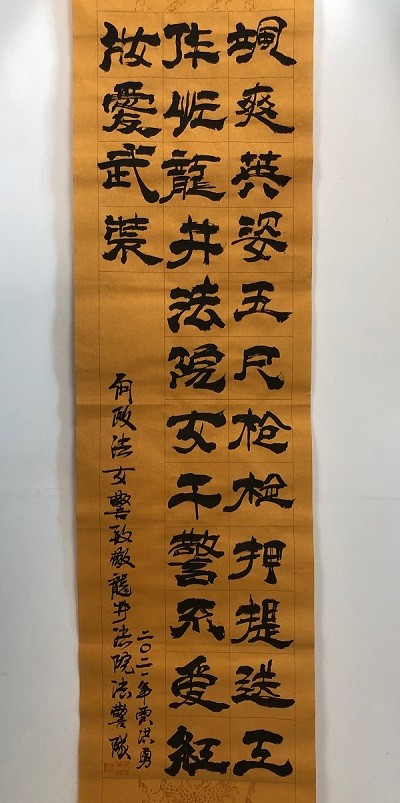 颯爽英姿五尺枪枪押提送工
作忙龍井法院女干警不爱红
妝愛武裝
向政法女警致敬龍井法院法警隊
二〇二一年洪勇